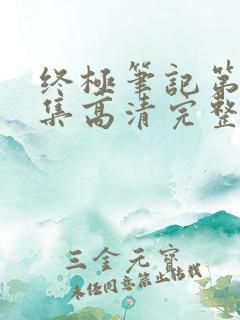 终极筆記第
集高清完整
三金元寳
未任同意禁止转载